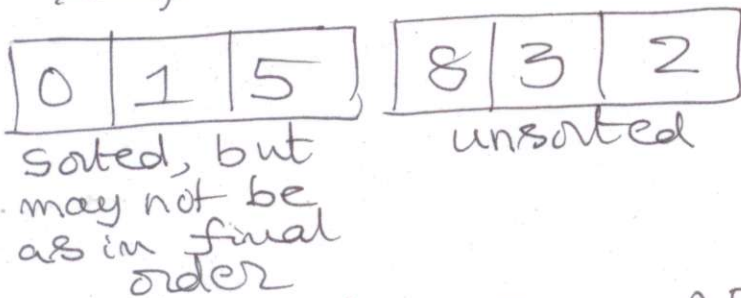 0 1 5 8 3 2
sorted, but
may not be
as in final
order
unsorted